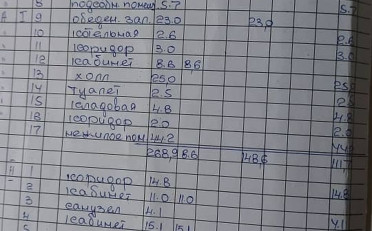 8 подсобн. помещ 5.7 5.7
А I 9 обеден. зал. 23.0 23,0
10 котельная 2.6 2.6
11 коридор 3.0 3.0
12 кабинет 8.6 8,6
13 холл 25,0
14 туалет 2.5
15 кладовая 4.8 4.8
16 коридор 2.0 2.0
17 нежилое пом 44.2
148,6
II 1 коридор 14.8 14.8
2 кабинет 11.0 11.0
3 санузел 4.1 4.1
4 кабинет 15.1 15.1
5